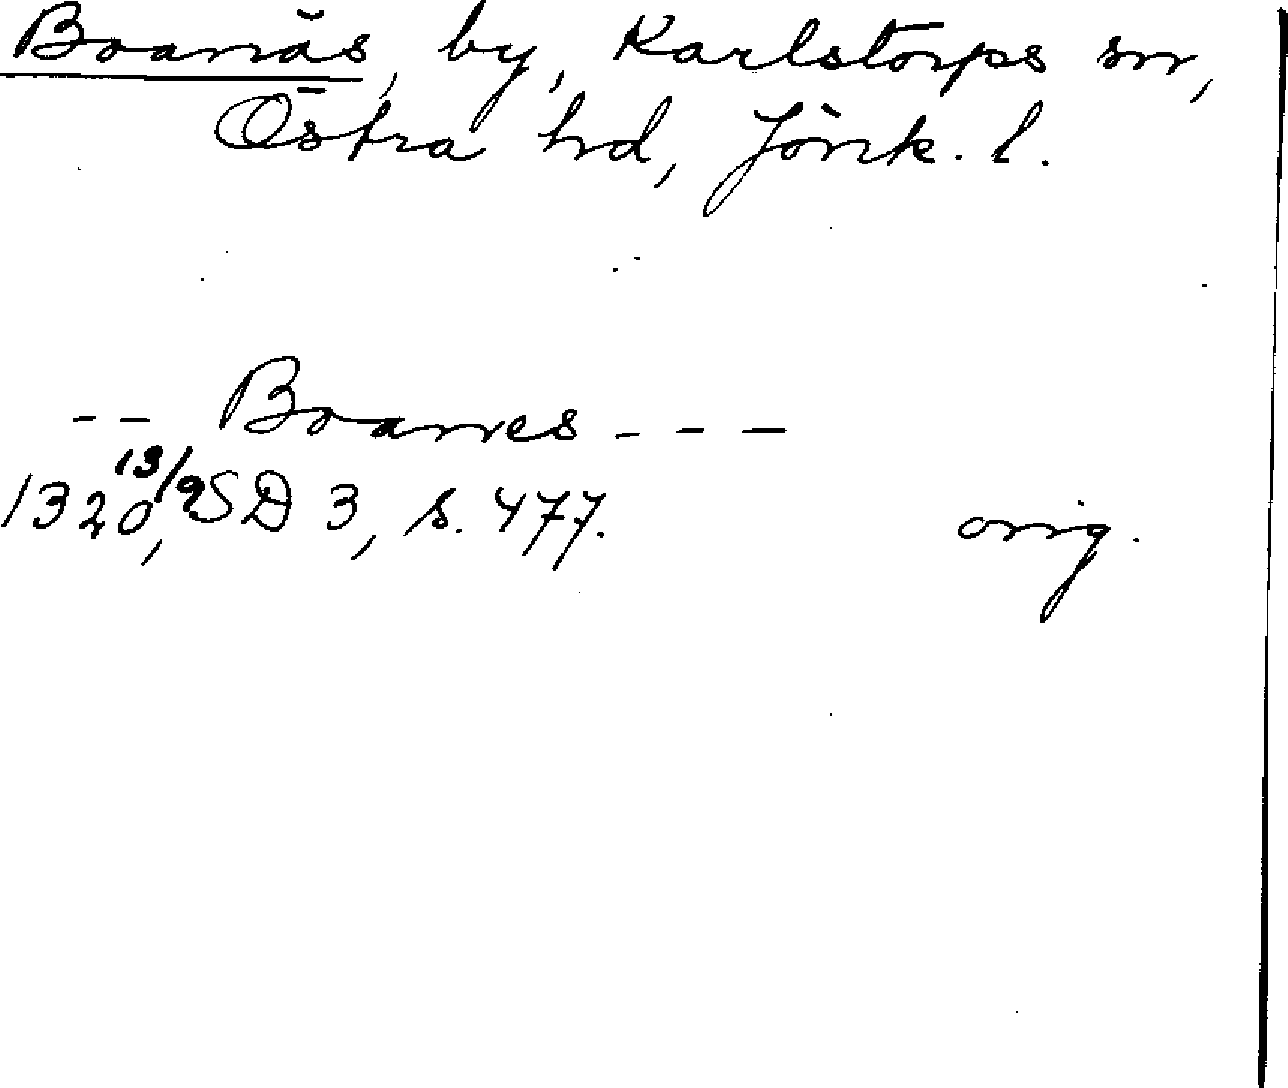 Boanäs, by, Karlstorps sn,
Östra hd, Jönk. l.
-- Boanes - - -
1320 13/9, SD 3, s. 477. orig.